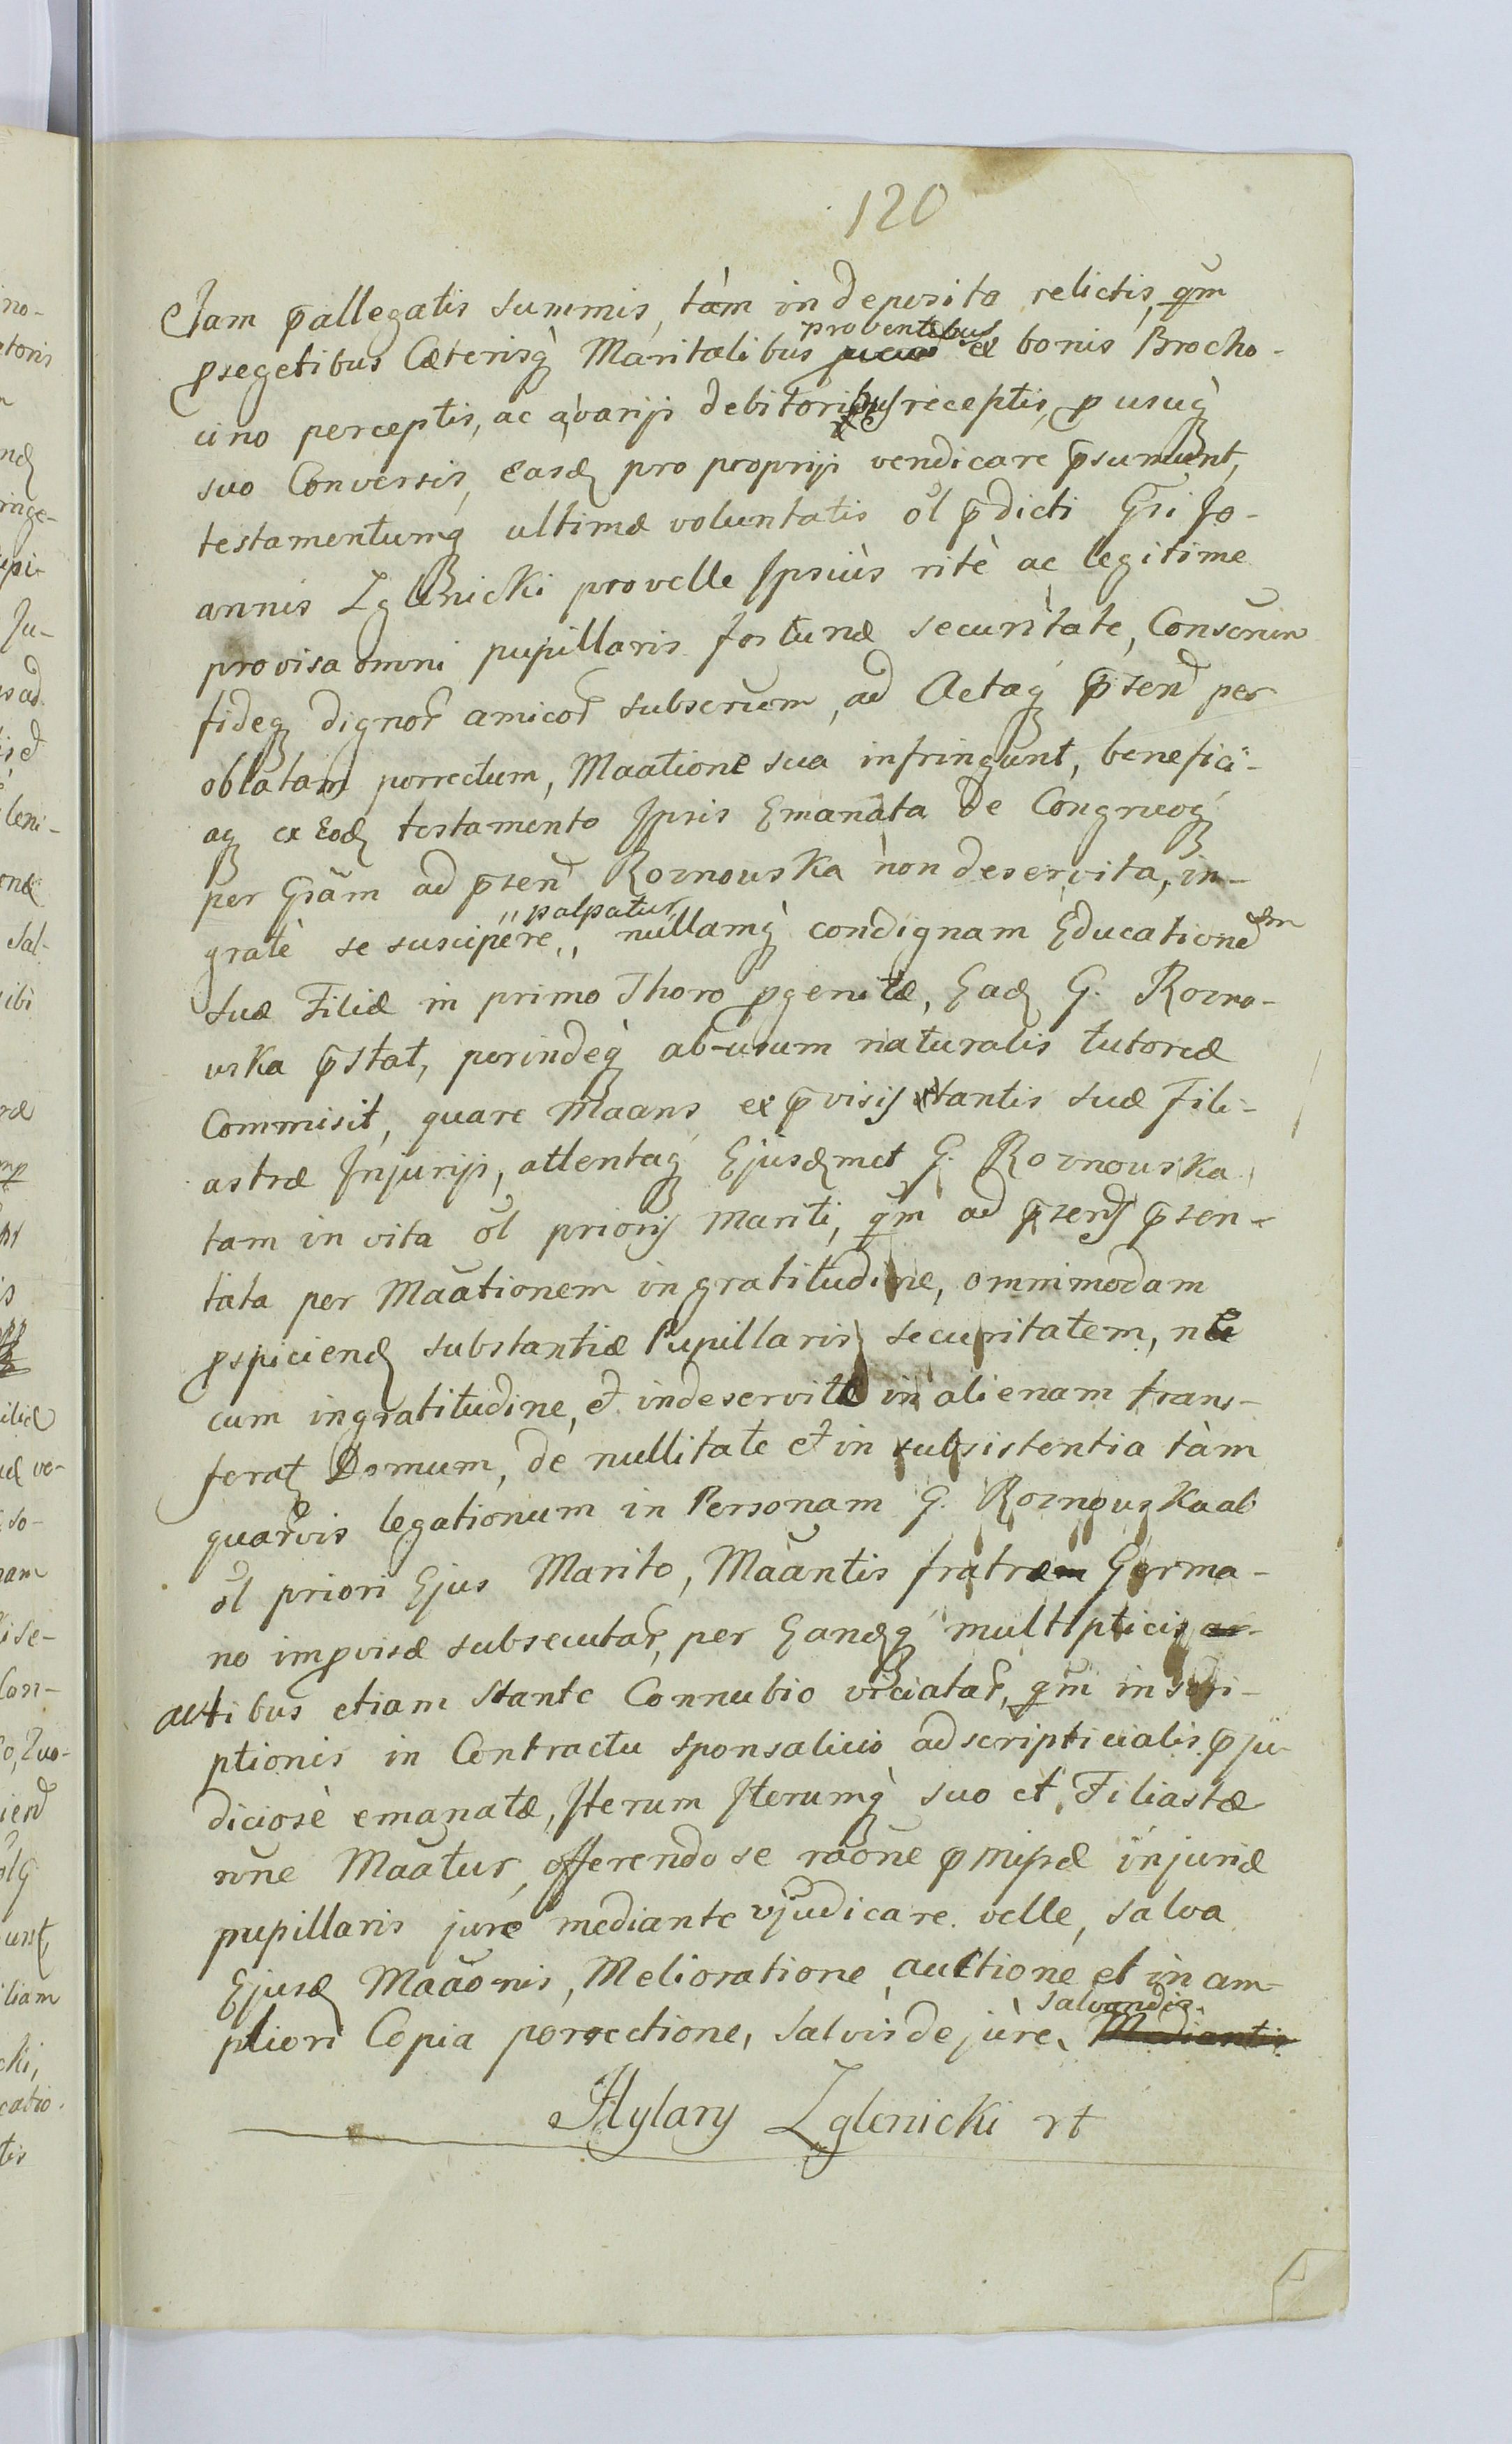 120
Jam p̄allegatis summis, tàm in deposito relictis, qm̄
psegetibus Cæterisq̀ Maritalibus proventibus ex bonis Brocho-
cino perceptis, ac à varijs debitoribus receptis, p usuq̀
suo Conversis, easd pro proprijs vendicare p̄sumunt,
testamentumq ultimæ voluntatis ol p̄dicti Gsi Jo-
annis Zglenicki pro velle Ipsiùs ritè ac legitime
provisa omni pupillaris fortunæ securitate, Consciun
fideq dignor amicor subscrium, ad Actaq p̄send per
oblatam porrectum, Maatione sua infringunt, benefici-
aq ex Eod testamento Ipsis Emanata de Congruoq
per Gsam ad p̄sen Roznouska non deservita, in-
gratè se suscipere palpatur, nullamq̀ condignam Educationem
suæ Filiæ in primo Thoro pgenitæ, Ead G. Rozno-
uska p̄stat, perindeq̀ ab-usum naturalis tutoreæ
Commisit, quare Maans, ex p̄visis stantis suæ Fili-
astræ Injurijs, attentaq Ejusdmet G. Roznouska
tam in vita ol prioris Mariti, qm̄ ad p̄sens p̄sen-
tata per Maationem ingratitudine, omnimodam
pspiciend substantiæ Pupillaris securitatem, ne
cum ingratitudine, et indeservitæ in alienam trans-
ferat Domum, de nullitate et in subsistentia tàm
quarvis legationum in Personam G. Roznouska ab
ol priori Ejus Marito, Maantis fratre Germa-
no improvisæ subsecutar, per Eandq multiplicis
actibus etiam stante Connubio viciatar, qm̄ inscri-
ptionis in Contractu sponsalicio adscripticialis p̄ju-
diciosè emanatæ, Iterum Iterumq̀ suo et Filiastæ
nōne Maatur, offerendo se raōne pmipæ injuriæ
pupillaris jure mediante vjudicare velle, salva
Ejusd Maaōnis, Melioratione, auctione et in am-
pliori Copia porrectione, salvis de jùre salvandis. Medianti
Hylary Zglenicki rt